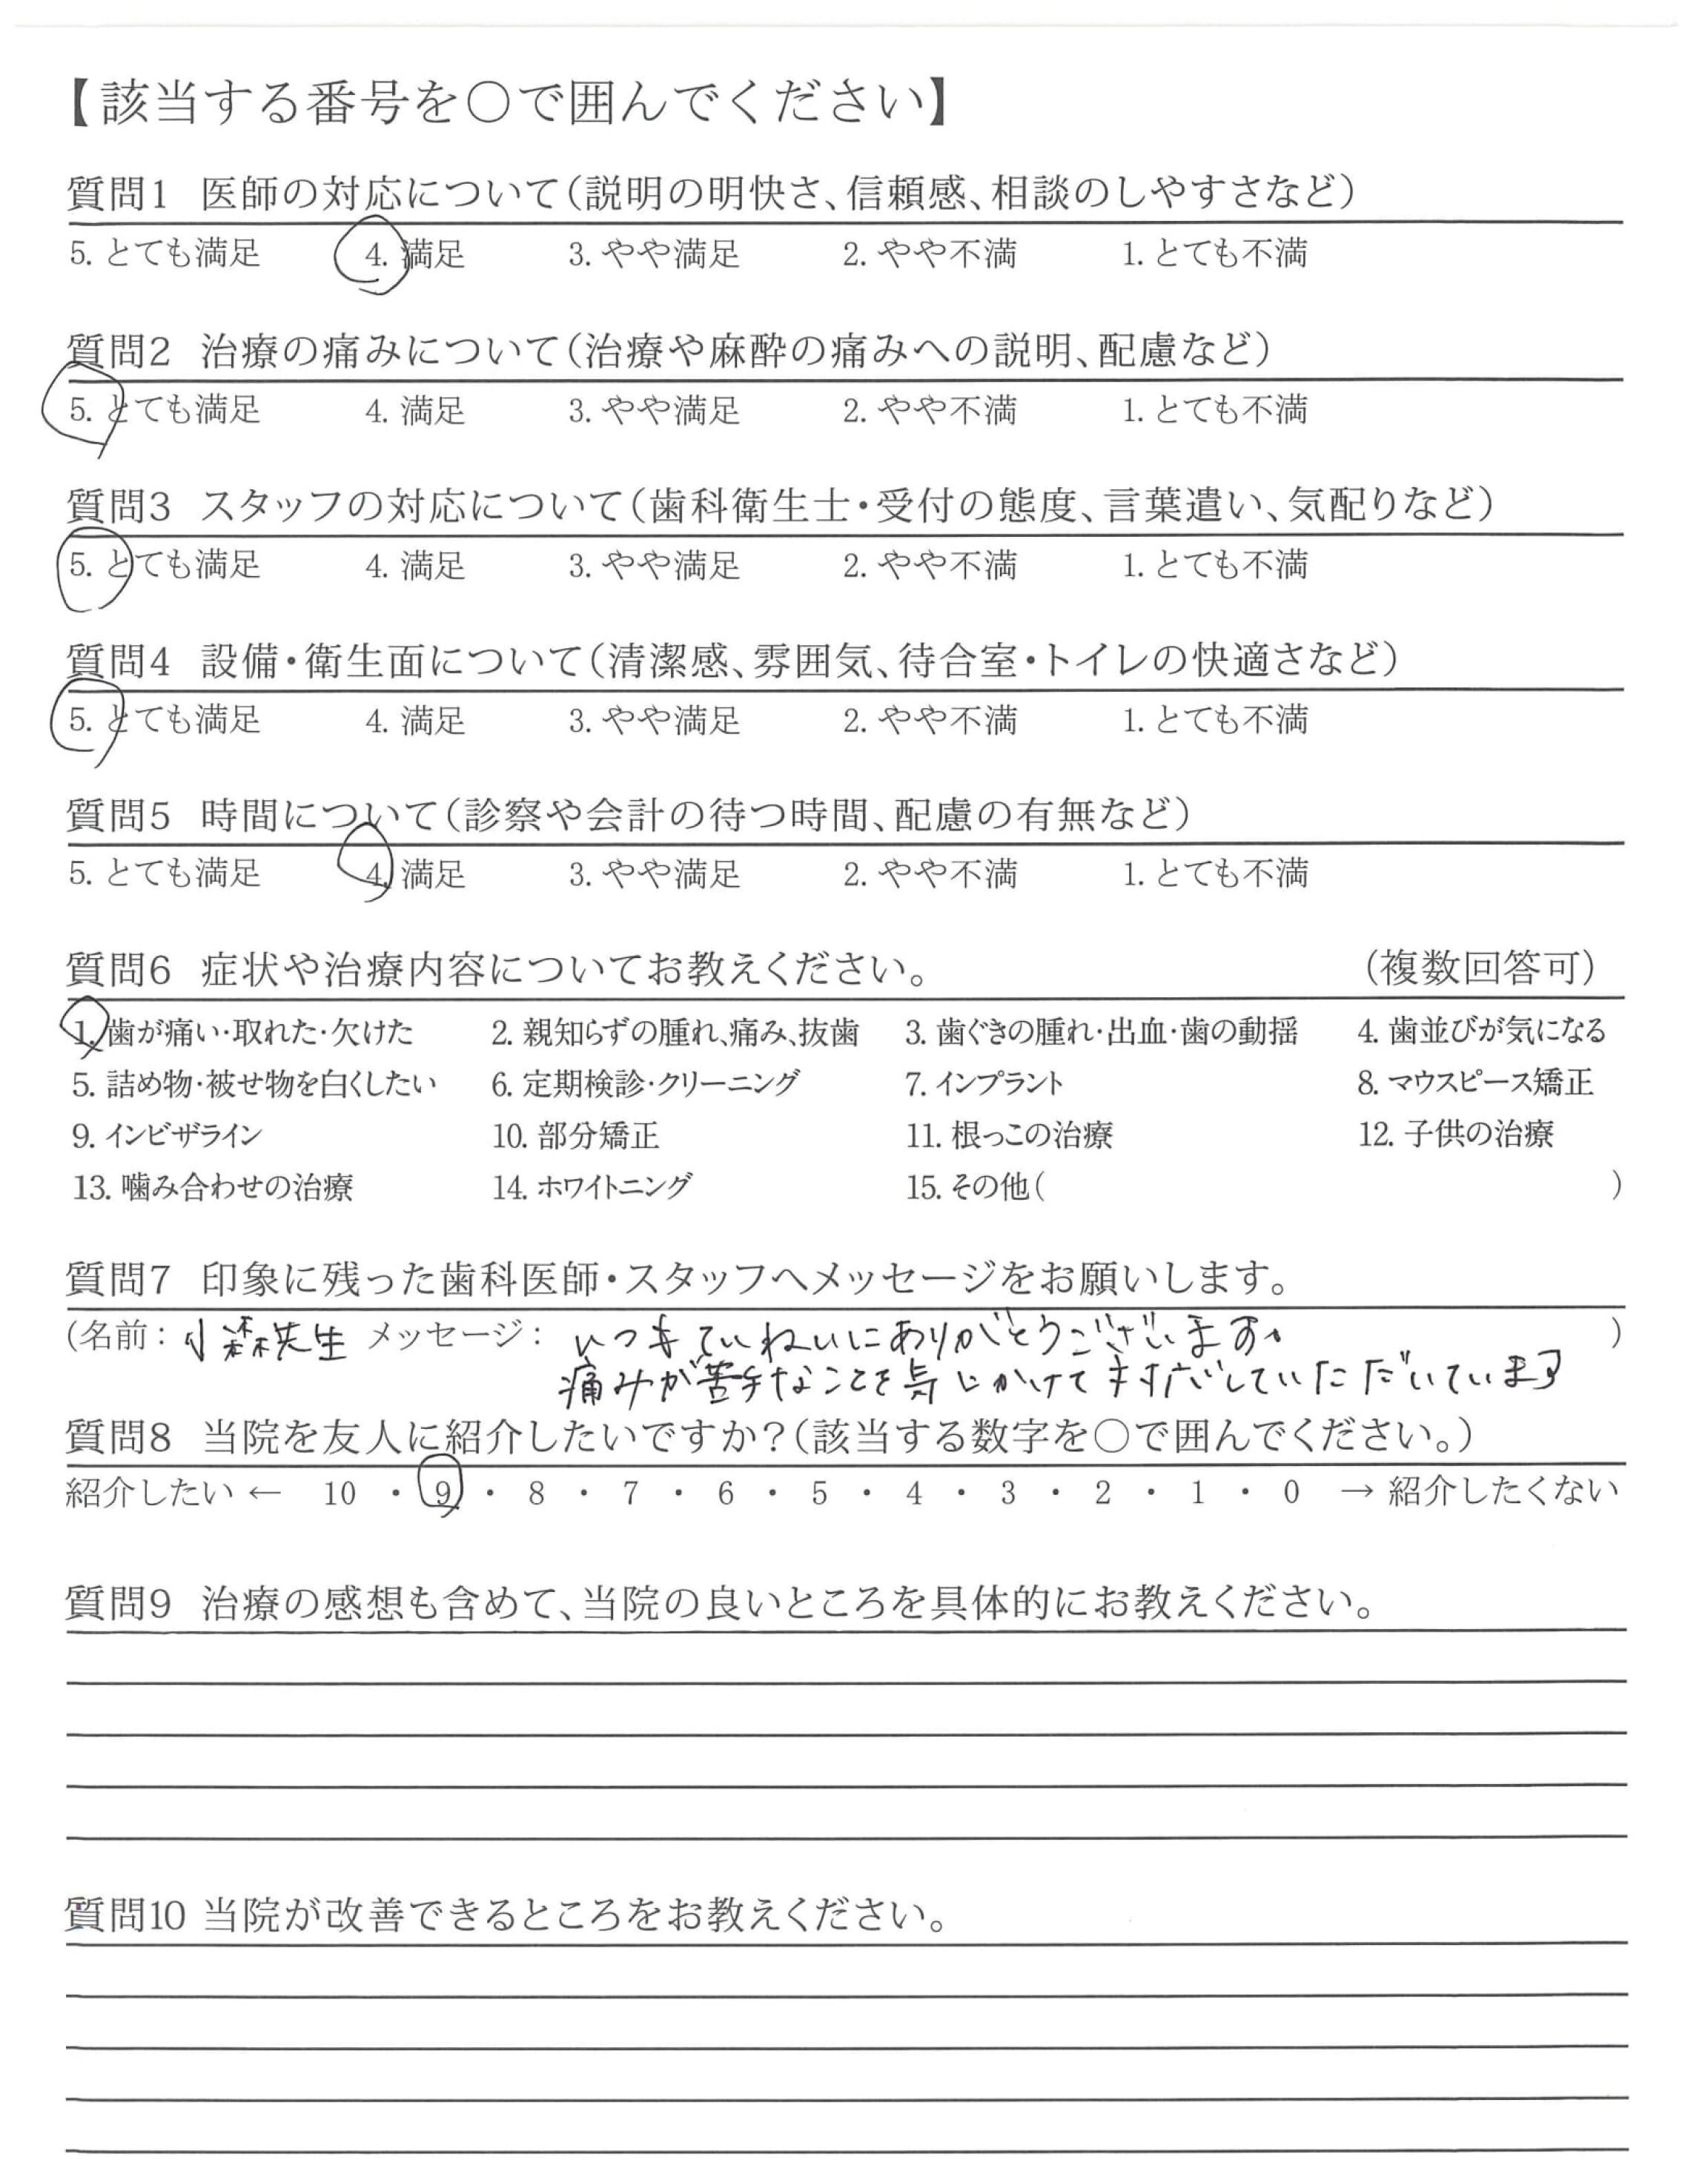 【該当する番号を〇で囲んでください】
質問1 医師の対応について(説明の明快さ、信頼感、相談のしやすさなど)
5. とても満足 4. 満足 3. やや満足 2. やや不満 1. とても不満
質問2 治療の痛みについて(治療や麻酔の痛みへの説明、配慮など)
5. とても満足 4. 満足 3. やや満足 2. やや不満 1. とても不満
質問3 スタッフの対応について(歯科衛生士・受付の態度、言葉遣い、気配りなど)
5. とても満足 4. 満足 3. やや満足 2. やや不満 1. とても不満
質問4 設備・衛生面について(清潔感、雰囲気、待合室・トイレの快適さなど)
5. とても満足 4. 満足 3. やや満足 2. やや不満 1. とても不満
質問5 時間について(診察や会計の待つ時間、配慮の有無など)
5. とても満足 4. 満足 3. やや満足 2. やや不満 1. とても不満
質問6 症状や治療内容についてお教えください。 (複数回答可)
1. 歯が痛い・取れた・欠けた 2. 親知らずの腫れ、痛み、抜歯 3. 歯ぐきの腫れ・出血・歯の動揺 4. 歯並びが気になる
5. 詰め物・被せ物を白くしたい 6. 定期検診・クリーニング 7. インプラント 8. マウスピース矯正
9. インビザライン 10. 部分矯正 11. 根っこの治療 12. 子供の治療
13. 噛み合わせの治療 14. ホワイトニング 15. その他( )
質問7 印象に残った歯科医師・スタッフへメッセージをお願いします。
(名前: 小森先生 メッセージ: いつもていねいにありがとうございます。 )
痛みが苦手なことを気にかけて対応していただいています
質問8 当院を友人に紹介したいですか?(該当する数字を〇で囲んでください。)
紹介したい ← 10 ・ 9 ・ 8 ・ 7 ・ 6 ・ 5 ・ 4 ・ 3 ・ 2 ・ 1 ・ 0 → 紹介したくない
質問9 治療の感想も含めて、当院の良いところを具体的にお教えください。
質問10 当院が改善できるところをお教えください。